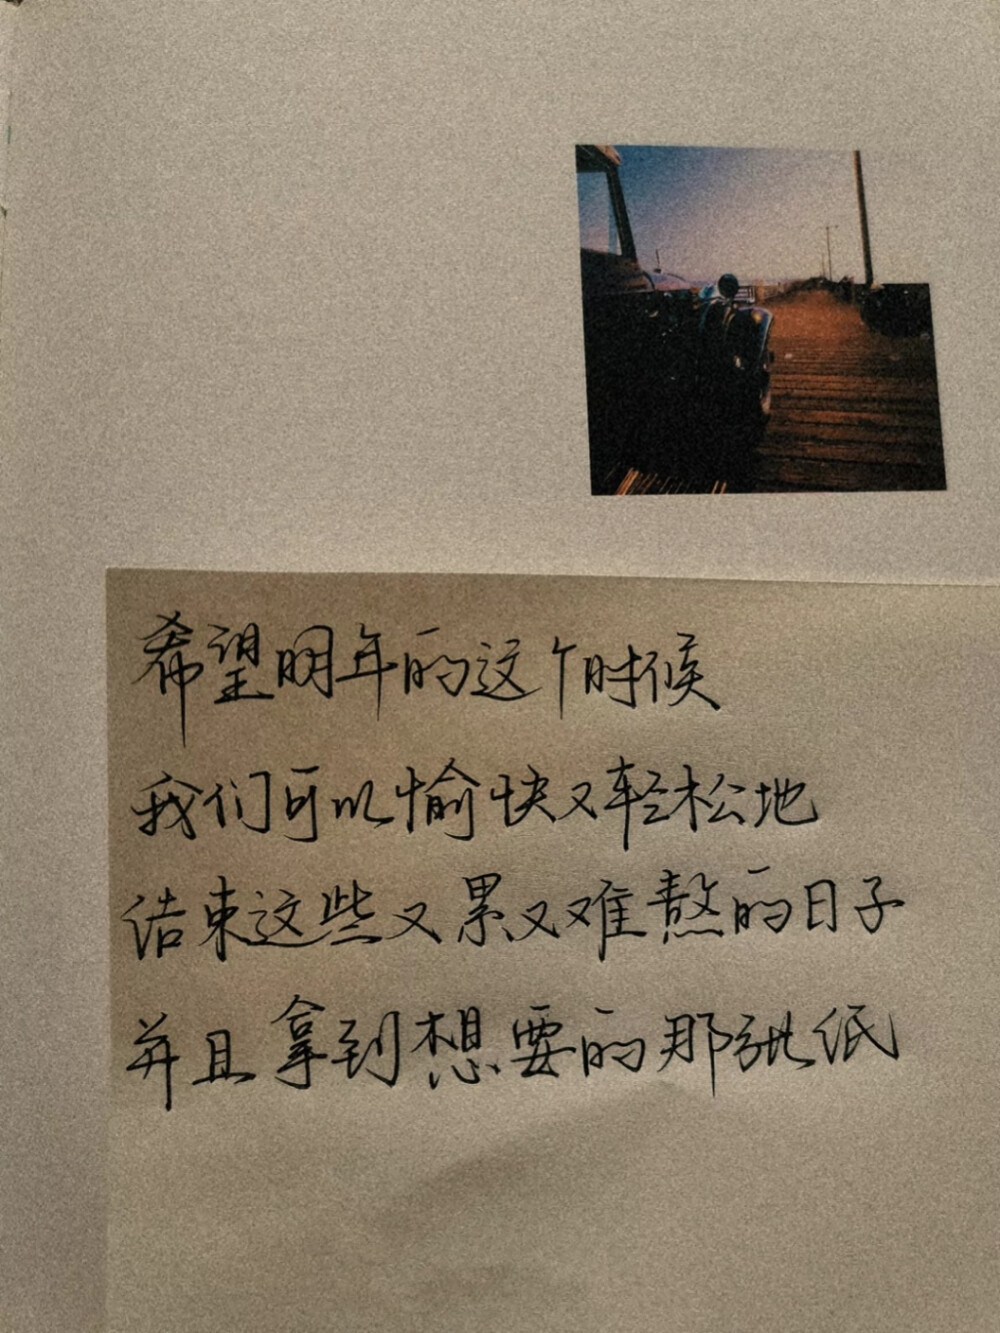 希望明年的这个时候
我们可以愉快又轻松地
结束这些又累又难熬的日子
并且拿到想要的那张纸